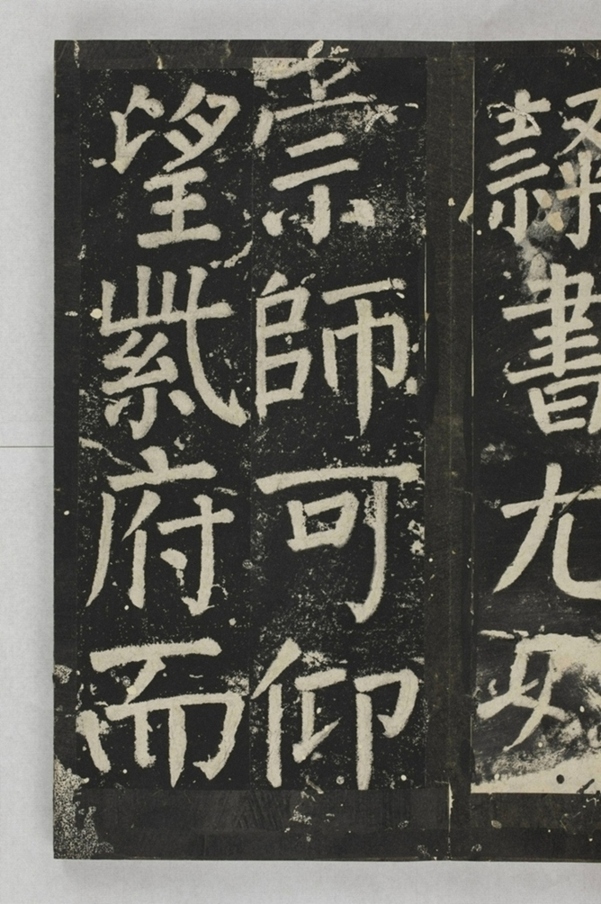 隸書尤
宗師可仰
望紫府而